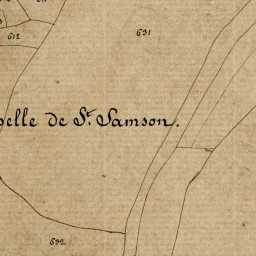 631
612
pelle de St. Samson.
692